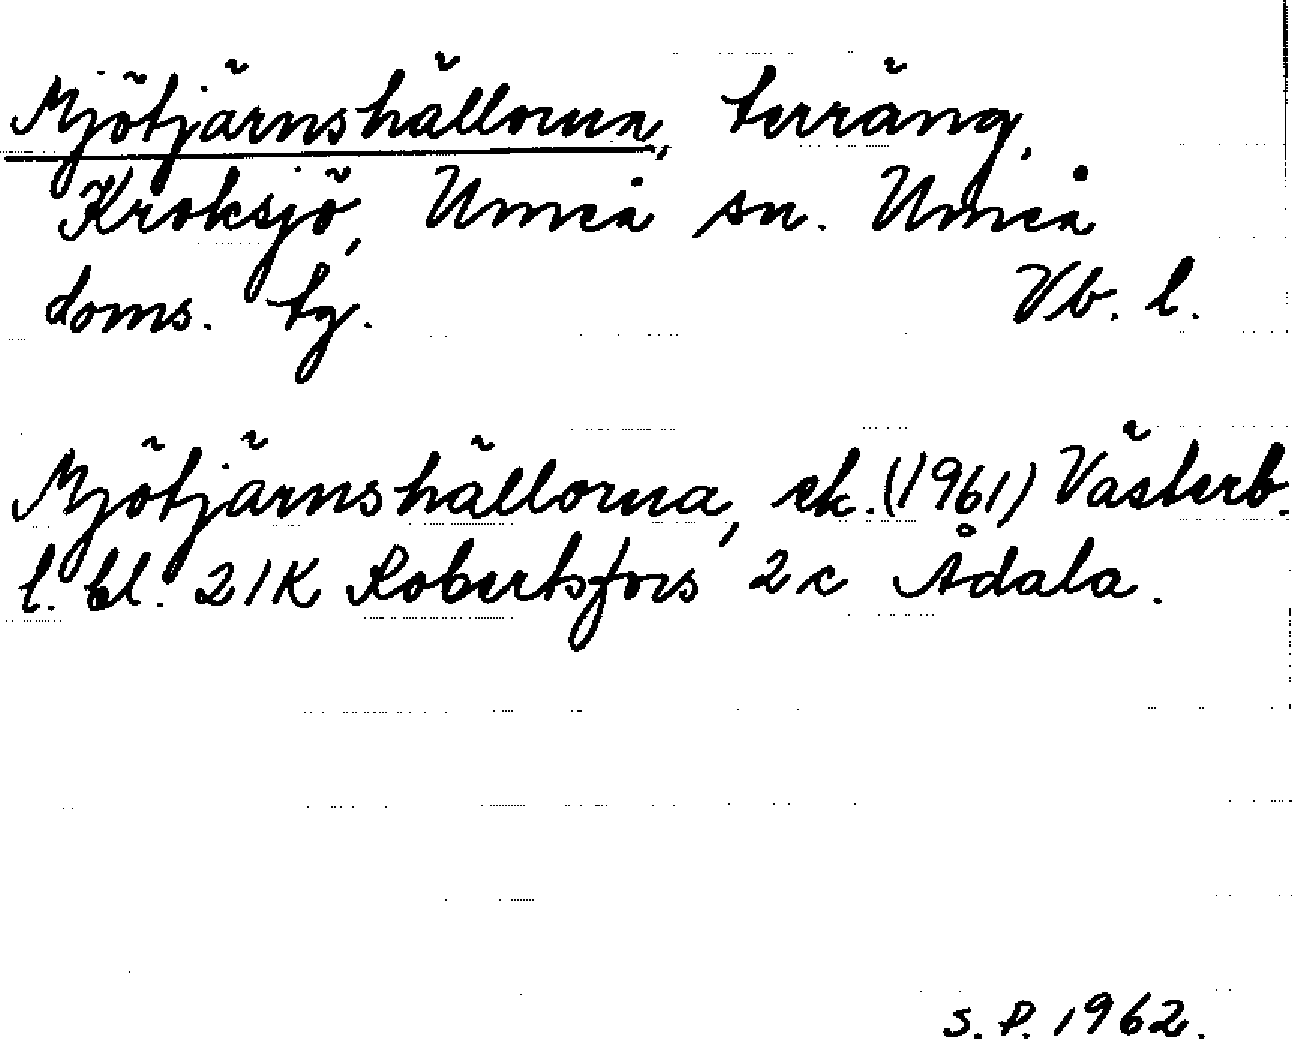 Mjötjärnshällorna, terräng,
Kroksjö, Umeå sn. Umeå
doms. tg. Vb. l.
Mjötjärnshällorna, ek. (1961) Västerb.
l. bl. 21K Robertsfors 2c Ådala.
S. P. 1962.